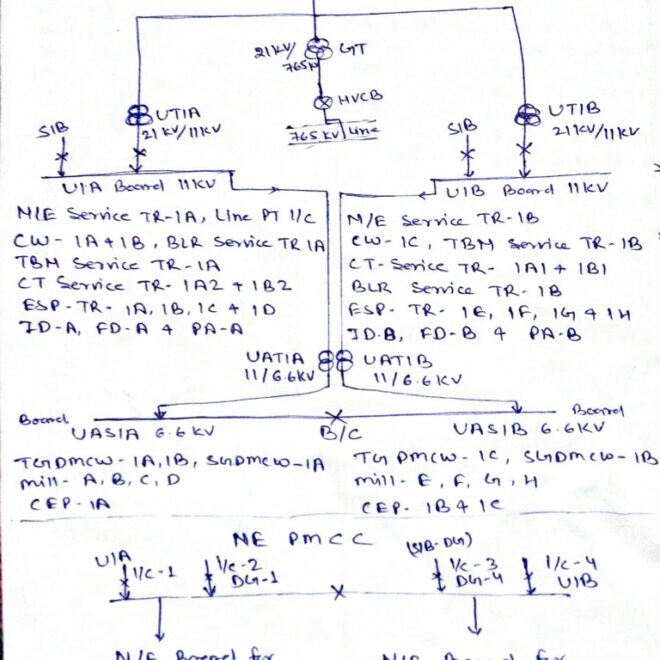 21KV/
765KV
GT
HVCB
765 KV Line
UT1A
21 KV/11KV
UT1B
21 KV/11KV
SIB
SIB
U1A Board 11KV
U1B Board 11KV
N/E Service TR-1A, Line PT I/C
CW- 1A+1B, BLR Service TR 1A
TBM Service TR-1A
CT Service TR- 1A2 + 1B2
ESP-TR- 1A, 1B, 1C + 1D
ID-A, FD-A & PA-A
N/E Service TR-1B
CW-1C, TBM Service TR-1B
CT-Service TR- 1A1 + 1B1
BLR Service TR-1B
ESP- TR- 1E, 1F, 1G & 1H
ID.B, FD-B & PA-B
UAT1A
11/6.6KV
UAT1B
11/6.6KV
Board
UAS1A 6.6KV
B/C
Board
UAS1B 6.6KV
TGDMCW-1A,1B, SGDMCW-1A
Mill- A, B, C, D
CEP-1A
TG DMCW- 1C, SGDMCW-1B
mill- E, F, G, H
CEP- 1B & 1C
NE PMCC
U1A
I/C-1
I/C-2
DG-1
(SIB-DG)
I/C-3
DG-4
I/C-4
U1B
N/E Board for
N/E Board for